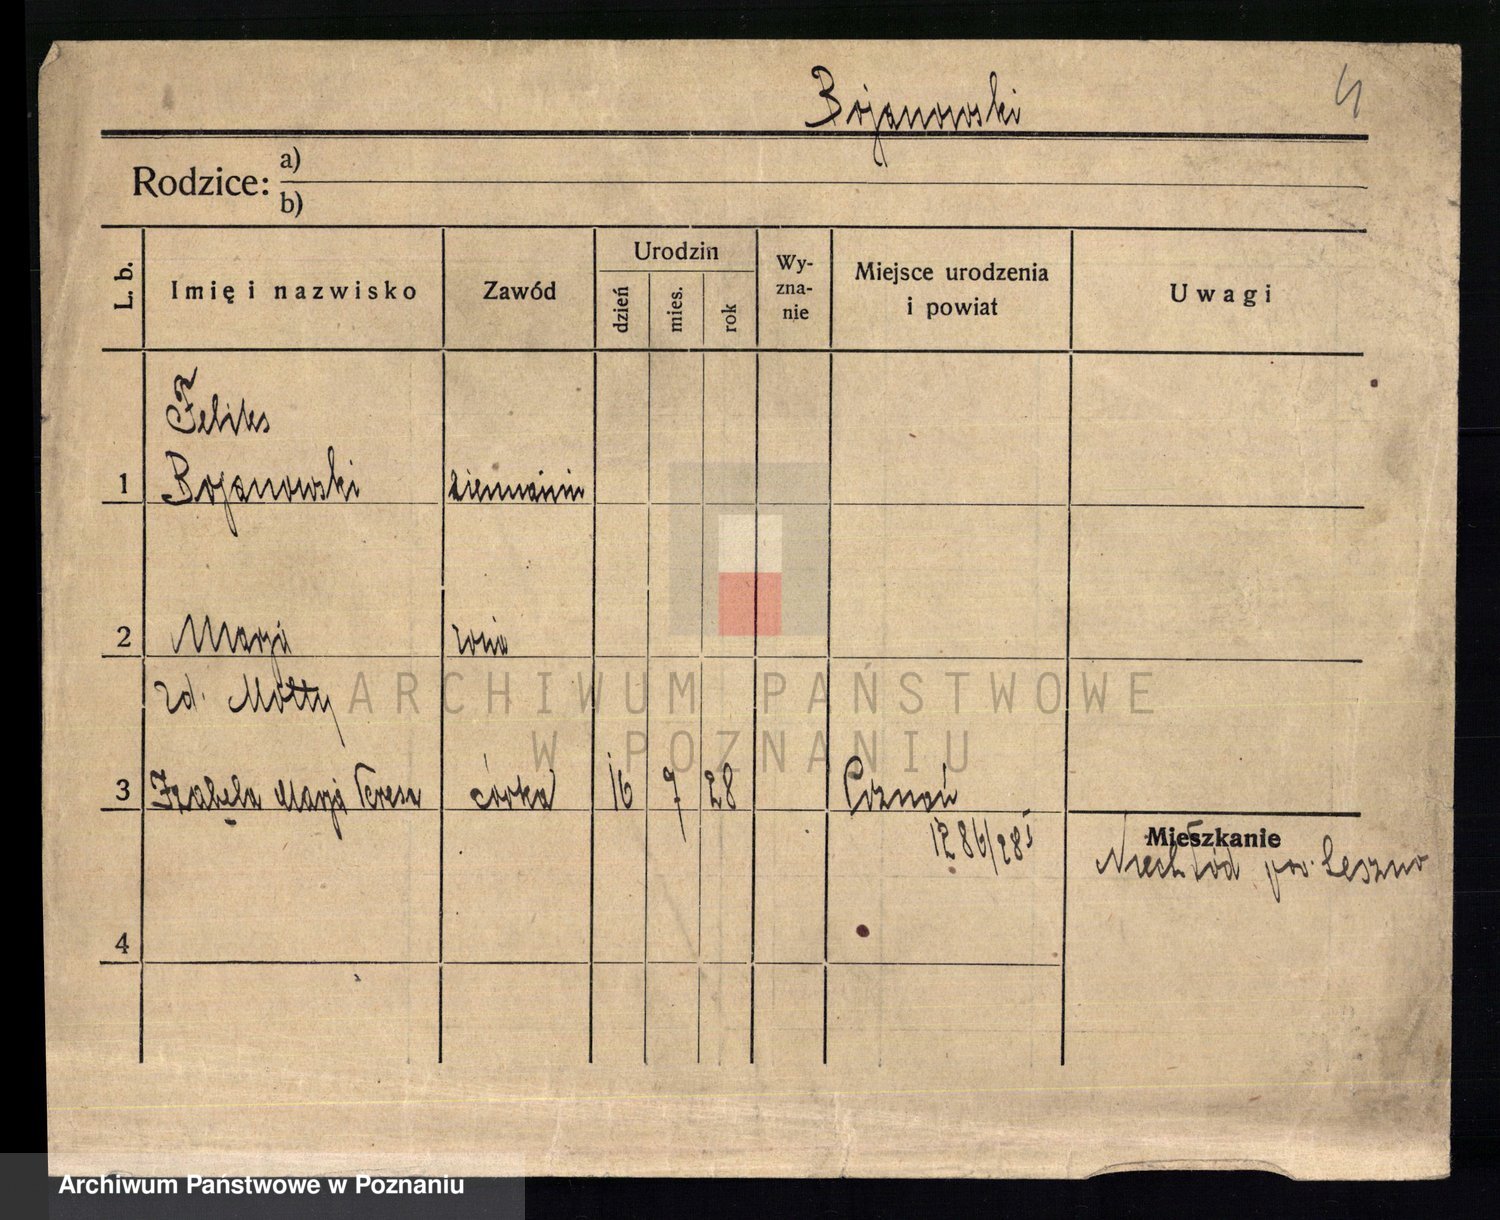 Bojanowski
4
Rodzice: a)
b)
L. b.
Imię i nazwisko
Zawód
Urodzin
dzień
mies.
rok
Wy-
zna-
nie
Miejsce urodzenia
i powiat
Uwagi
Feliks
1 Bojanowski ziemianin
2 Marja żona
zd. Motty
3 Izabela Marja Teresa córka 16 7 28 Poznań
1286/28
Mieszkanie
Niechłód pow. Leszno
4
ARCHIWUM PAŃSTWOWE
W POZNANIU
Archiwum Państwowe w Poznaniu